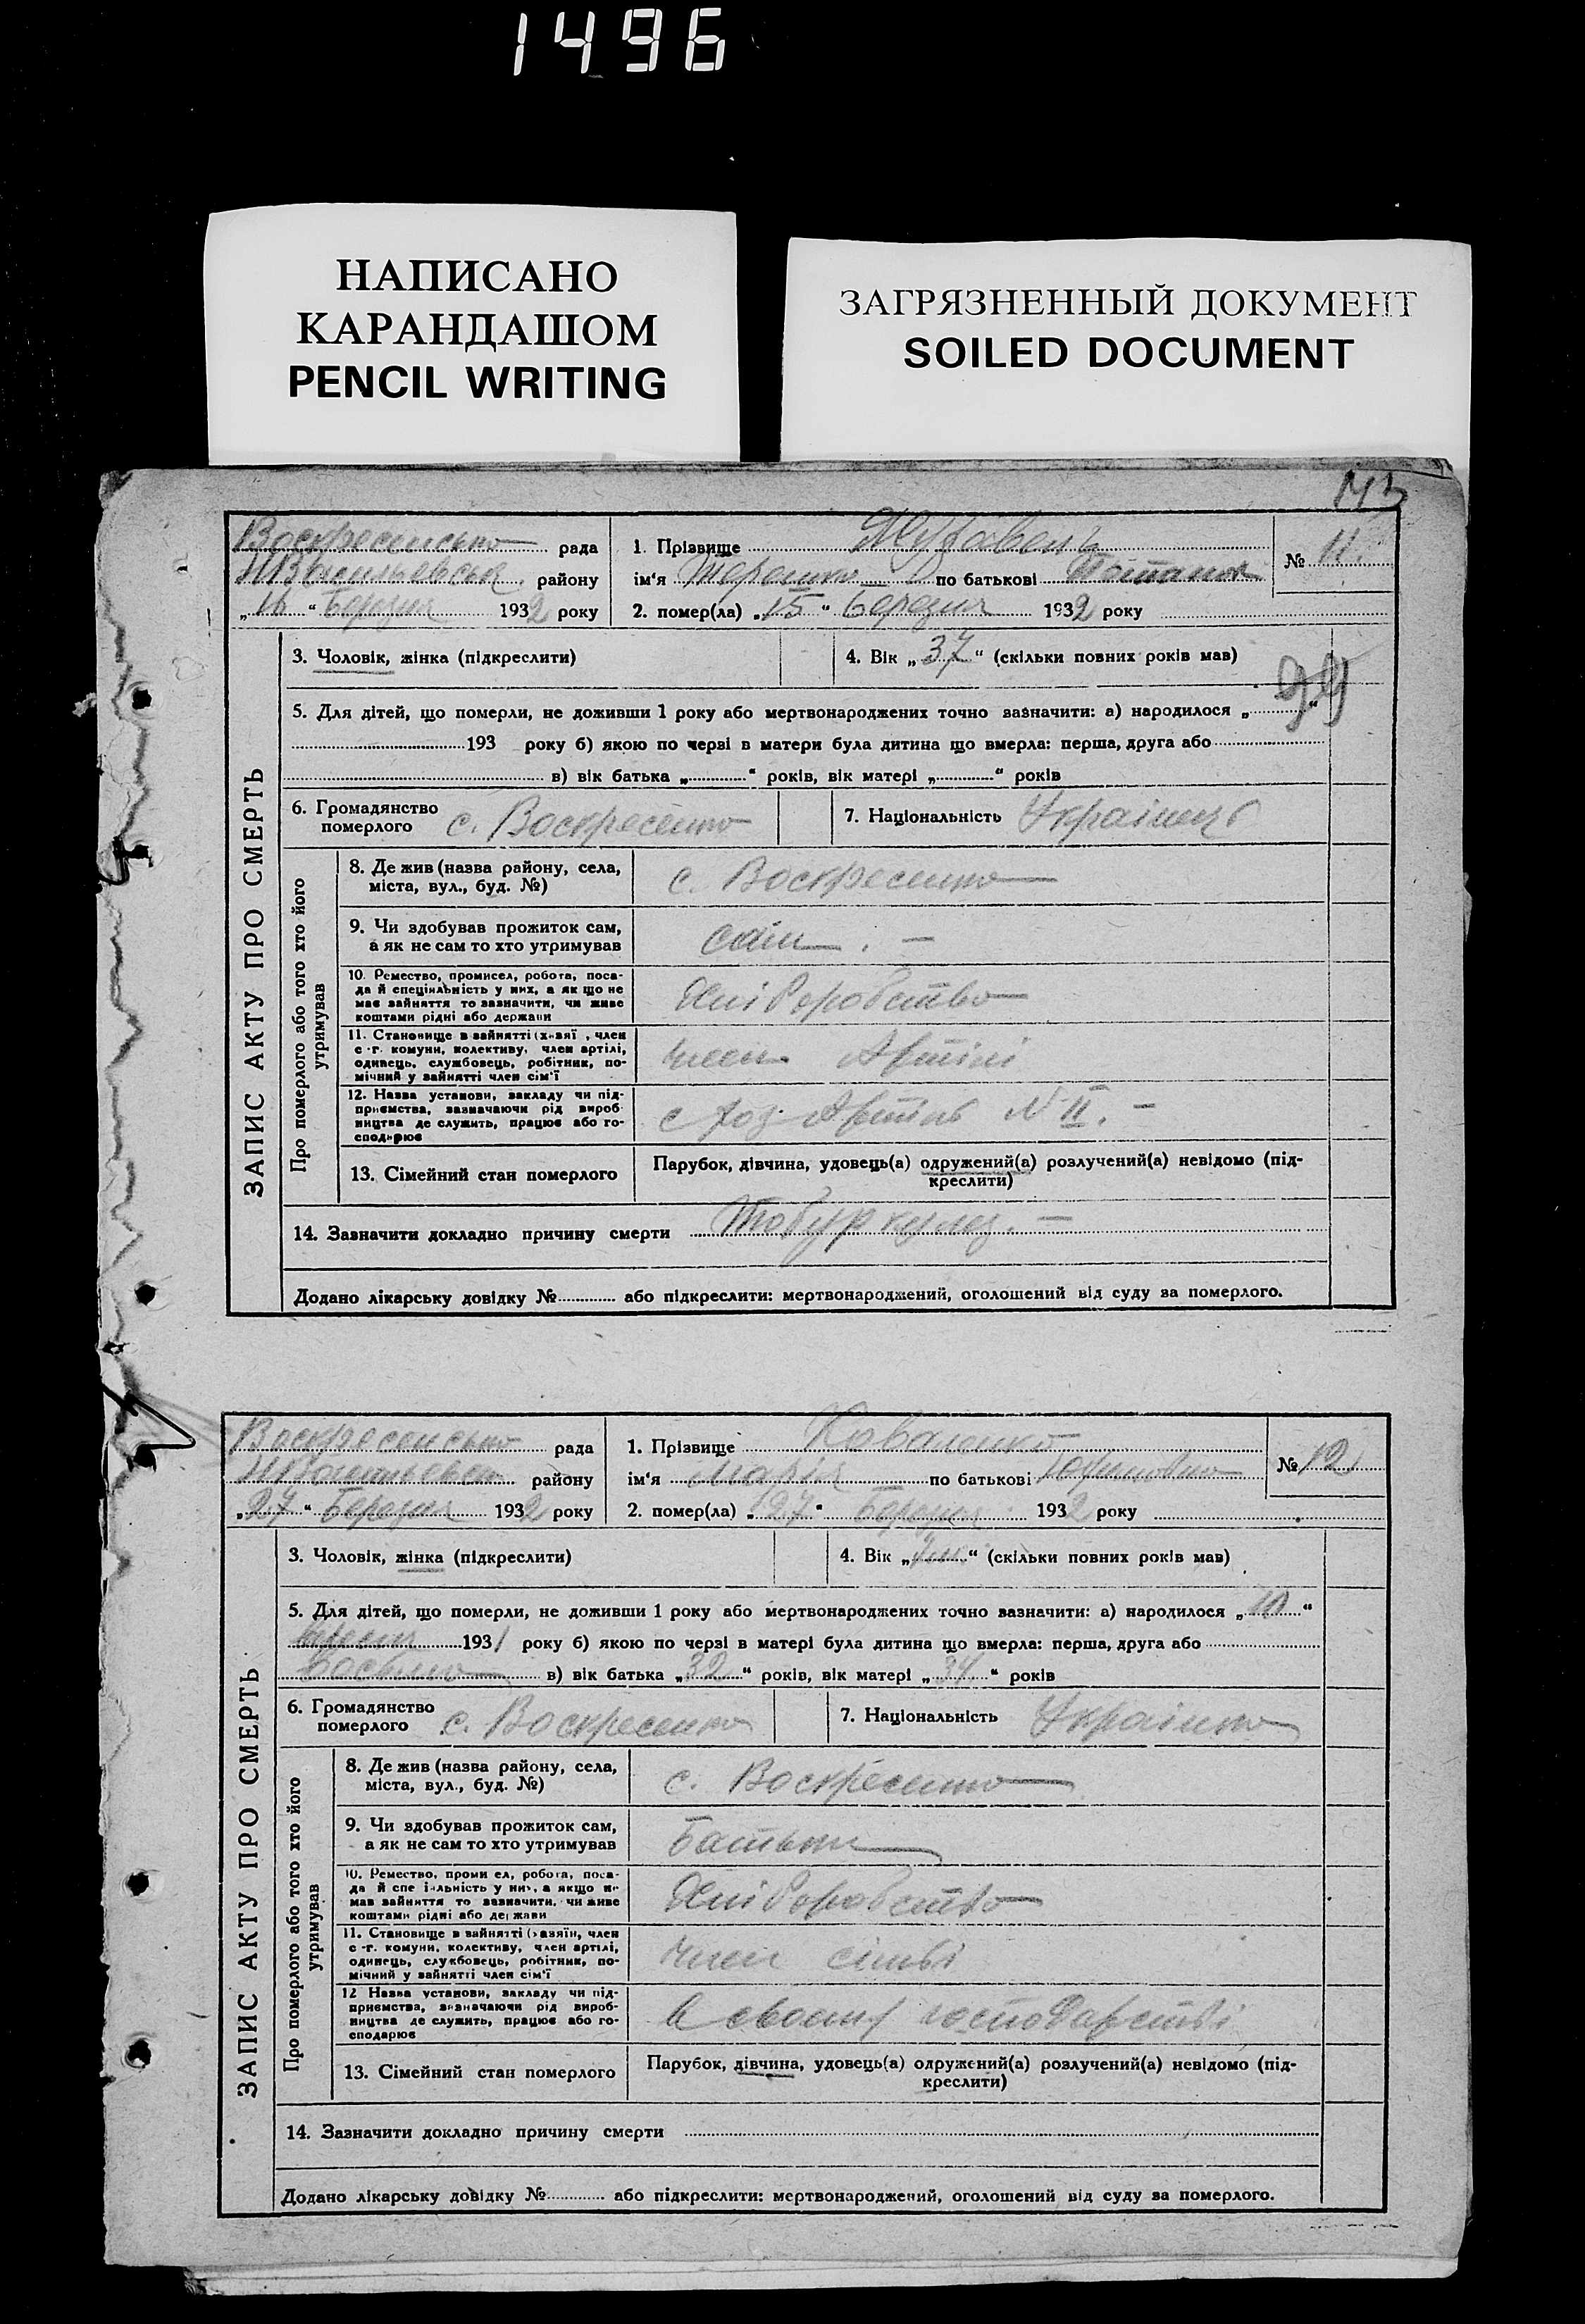 1496
НАПИСАНО
КАРАНДАШОМ
PENCIL WRITING
ЗАГРЯЗНЕННЫЙ ДОКУМЕНТ
SOILED DOCUMENT
Воскресенська рада
району
„16“ Березня 1932 року
1. Прізвище Журавель
ім'я по батькові
2. помер(ла) „15“ Березня 1932 року
№ 11.
3. Чоловік, жінка (підкреслити)
4. Вік „37“ (скільки повних років мав)
99
5. Для дітей, що померли, не доживши 1 року або мертвонароджених точно зазначити: а) народилося „ “
193 року б) якою по черві в матери була дитина що вмерла: перша, друга або
в) вік батька „ “ років, вік матері „ “ років
6. Громадянство
померлого с. Воскресенка
7. Національність Українець
ЗАПИС АКТУ ПРО СМЕРТЬ
Про померлого або того хто його
утримував
8. Де жив (назва району, села,
міста, вул., буд. №)
с. Воскресенка
9. Чи здобував прожиток сам,
а як не сам то хто утримував
сам. —
10. Ремество, промисел, робота, поса-
да й спеціяльність у них, а як що не
має зайняття то зазначити, чи живе
коштами рідні або держави
Хліборобство
11. Становище в зайнятті (хазяї, член
с.-г. комуни, колективу, член артілі,
одинець, службовець, робітник, по-
мічний у зайнятті член сім'ї
член Артілі
12. Назва установи, закладу чи під-
приємства, зазначаючи рід вироб-
ництва де служить, працює або го-
сподарює
с хоз. Артіль N II. —
13. Сімейний стан померлого
Парубок, дівчина, удовець(а) одружений(а) розлучений(а) невідомо (під-
креслити)
14. Зазначити докладно причину смерти Тобуркулоз. —
Додано лікарську довідку № або підкреслити: мертвонароджений, оголошений від суду за померлого.
Воскресенська рада
району
„27“ Березня 1932 року
1. Прізвище Коваленко
ім'я Марія по батькові
2. помер(ла) „27“ Березня 1932 року
№ 12
3. Чоловік, жінка (підкреслити)
4. Вік „ “ (скільки повних років мав)
5. Для дітей, що померли, не доживши 1 року або мертвонароджених точно зазначити: а) народилося „10“
1931 року б) якою по черзі в матері була дитина що вмерла: перша, друга або
в) вік батька „32“ років, вік матері „34“ років
6. Громадянство
померлого с. Воскресенка
7. Національність Українка
ЗАПИС АКТУ ПРО СМЕРТЬ
Про померлого або того хто його
утримував
8. Де жив (назва району, села,
міста, вул., буд. №)
с. Воскресенка
9. Чи здобував прожиток сам,
а як не сам то хто утримував
Батьки
10. Ремество, промисел, робота, поса-
да й спеціяльність у них, а якщо не
має зайняття то зазначити, чи живе
коштами рідні або держави
Хліборобство
11. Становище в зайнятті (хазяїн, член
с.-г. комуни, колективу, член артілі,
одинець, службовець, робітник, по-
мічний у зайнятті член сім'ї
член сімьі
12 Назва установи, закладу чи під-
приємства, зазначаючи рід вироб-
ництва де служить, працює або го-
сподарює
В своему господарстві
13. Сімейний стан померлого
Парубок, дівчина, удовець(а) одружений(а) розлучений(а) невідомо (під-
креслити)
14. Зазначити докладно причину смерти
Додано лікарську довідку № або підкреслити: мертвонароджений, оголошений від суду за померлого.